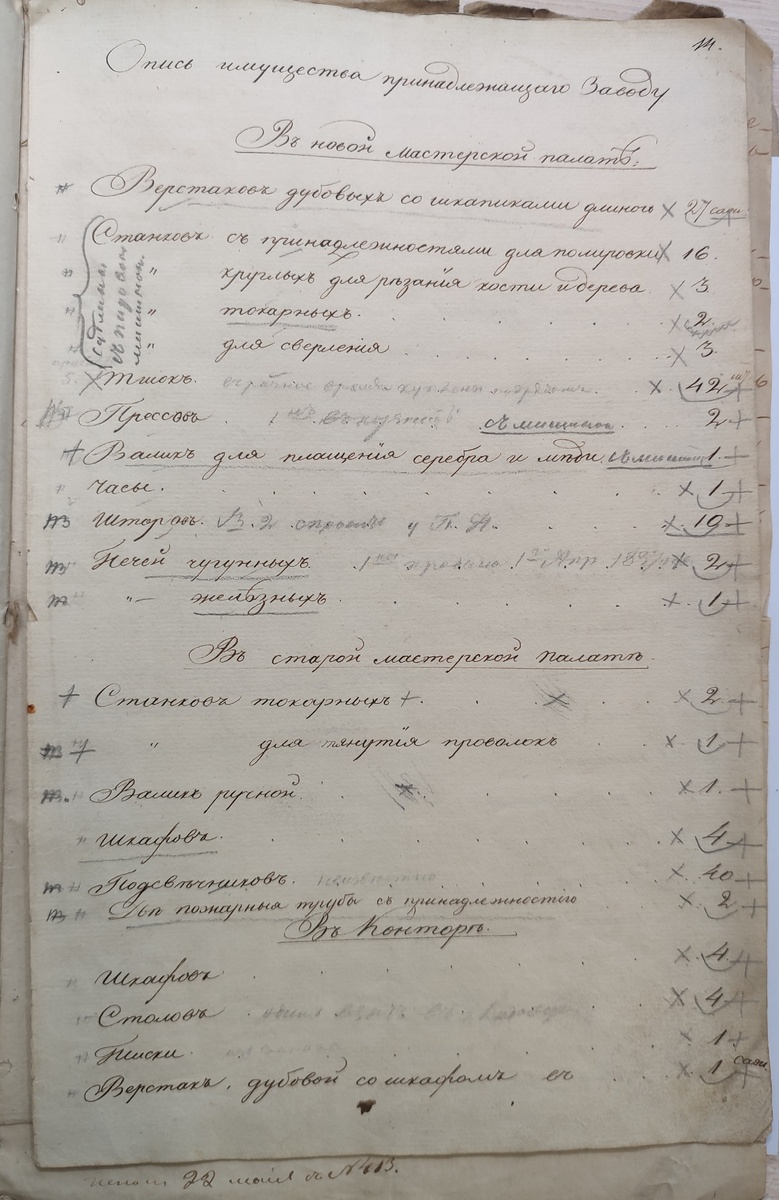 14.
Опись имущества принадлежащаго Заводу
Въ новой мастерской палатѣ:
Верстаковъ дубовыхъ со шкапиками длиною × 27 саж.
Станковъ съ принадлежностями для полировки × 16.
" круглыхъ для рѣзанія кости и дерева × 3.
" токарныхъ. × 2.
" для сверления × 3.
Тисковъ. × 42 +
Прессовъ 2 +
+ Валикъ для плащенія серебра и мѣди 1 +
Часы. × 1 +
Шторовъ. × 19 +
Печей чугунныхъ. × 2 +
"— желѣзныхъ. × 1 +
Въ старой мастерской палатѣ.
+ Станковъ токарныхъ +. × × 2 +
" для тянутія проволокъ × 1 +
Валикъ ручной. × × 1. +
Шкафовъ. × 4 +
Подсвѣчниковъ. неизвестно × 40 +
Двѣ пожарныя трубы съ принадлежностію × 2 +
Въ Конторѣ.
Шкафовъ × 4 +
Столовъ × 4 +
Тиски × 1 +
Верстакъ, дубовой со шкафомъ въ × 1 саж.
22 №413.